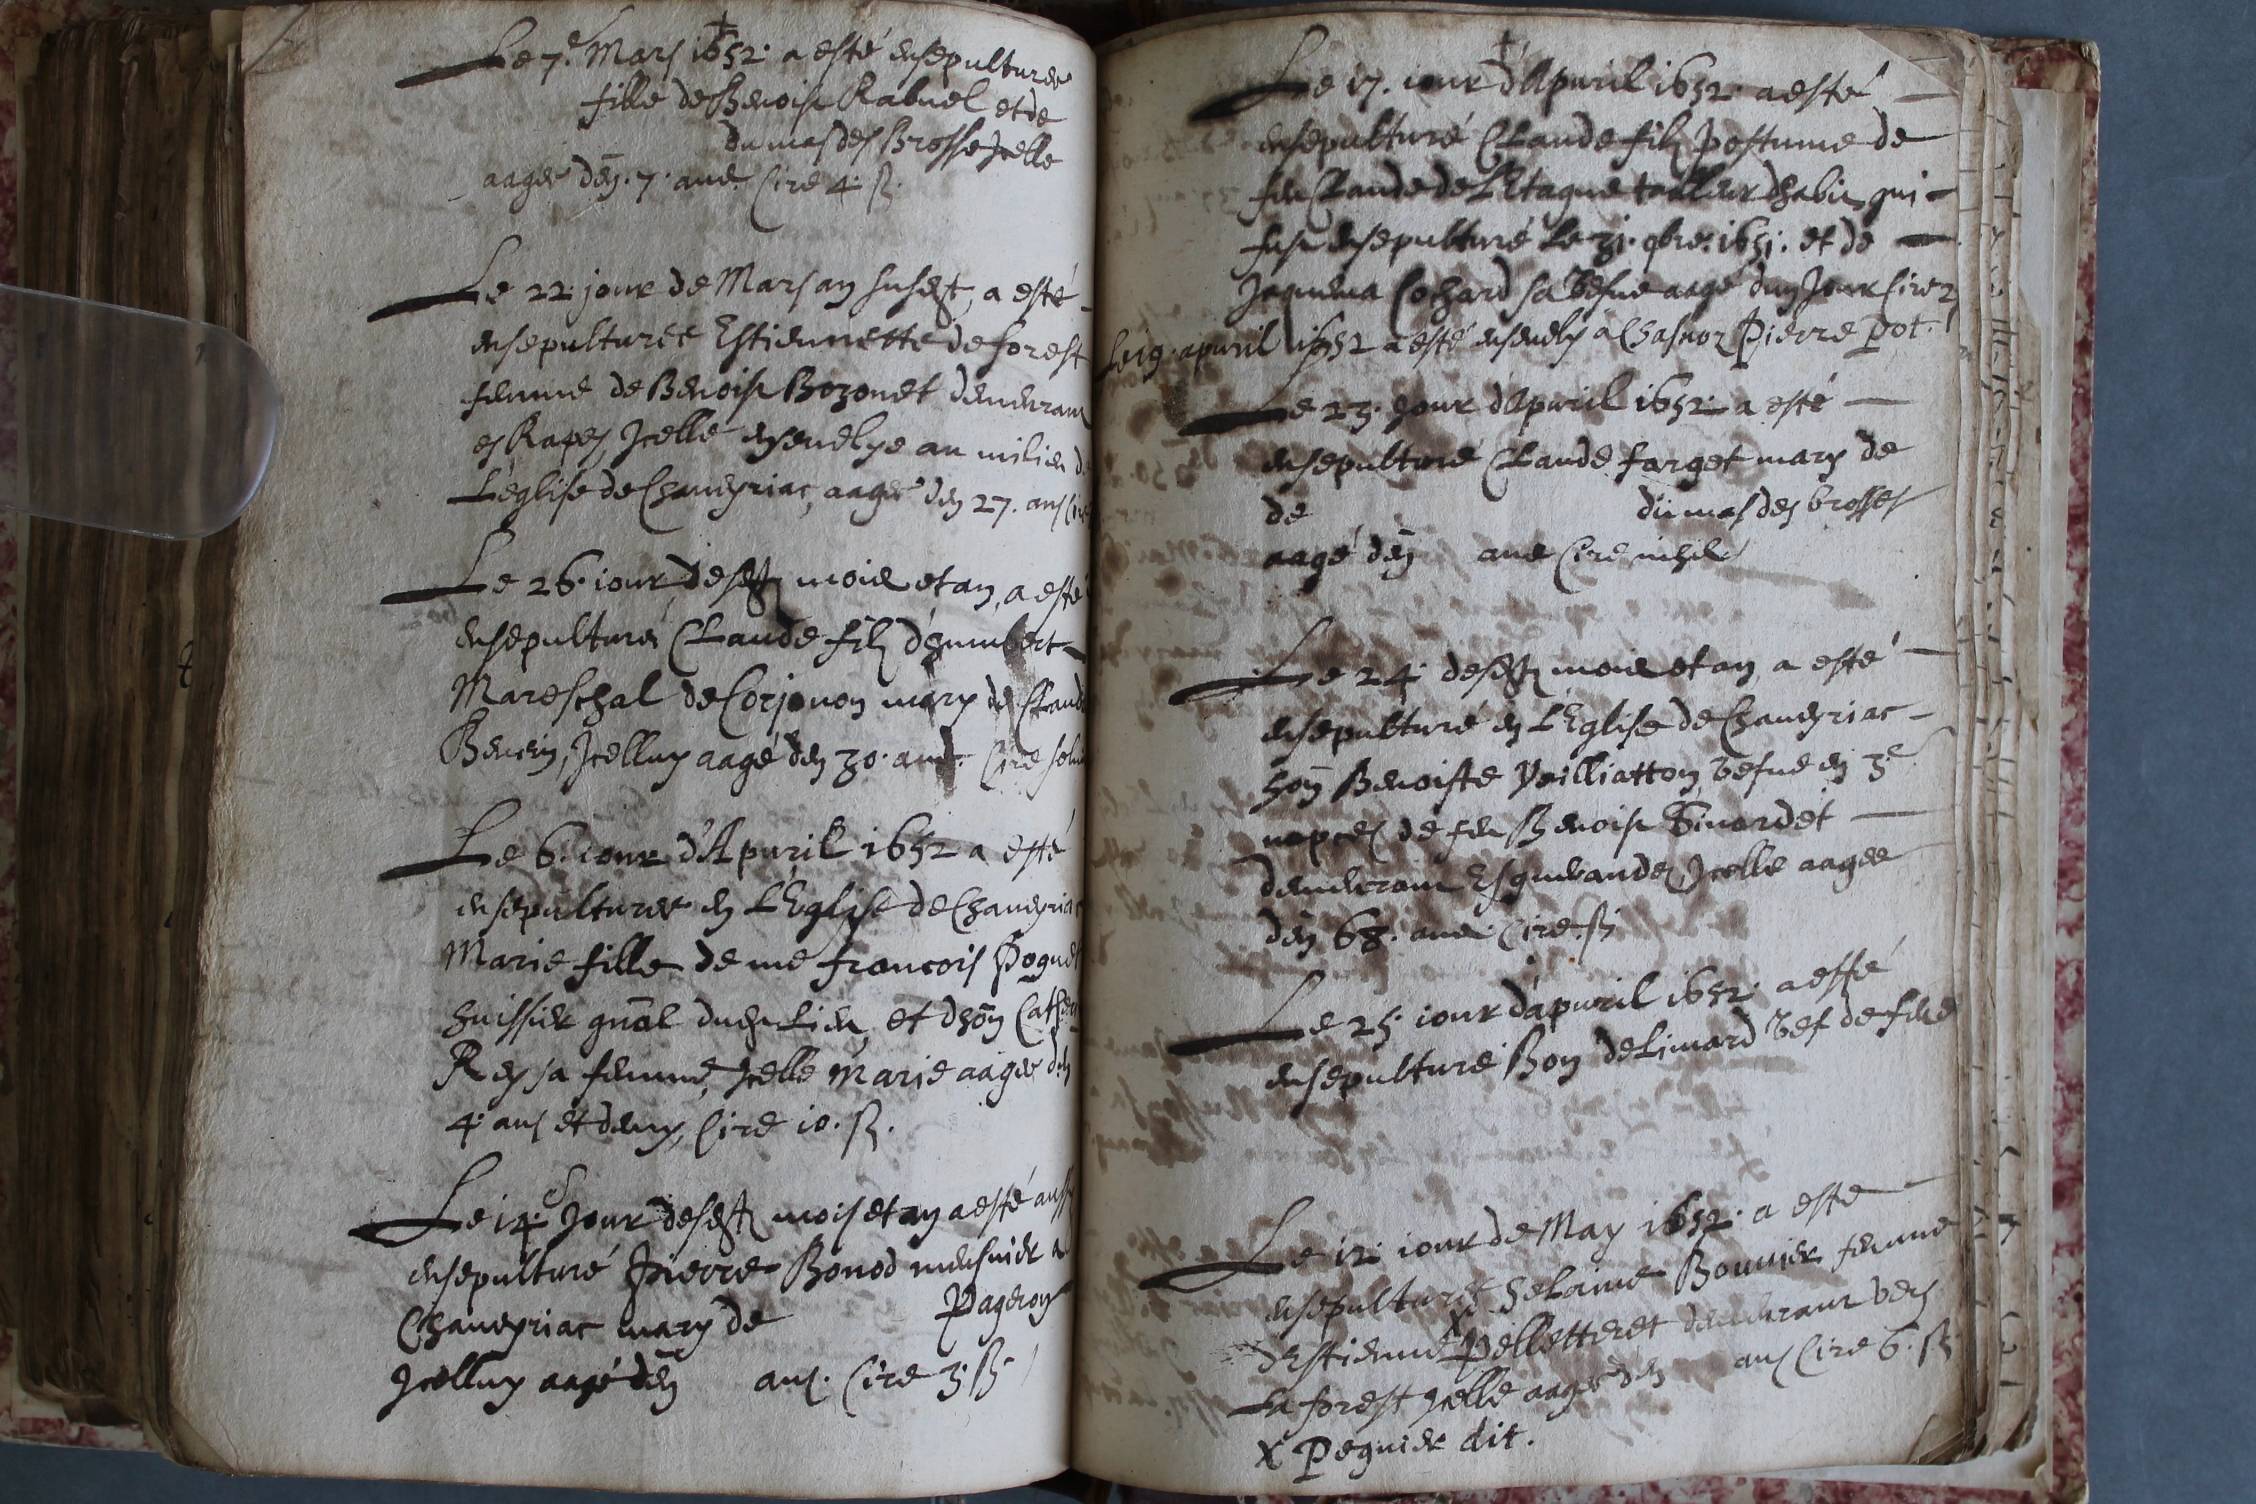 +
Le 7.e Mars 1652. a esté ensepulturee
fille de Benoist Rabuel et de
du mas des Brosse Icelle
aagee den. 7. ans. Cire 4. ß.
Le 22. jour de Mars an susdt, a esté
ensepulturée Estiennette deforest
femme de Benoist Bozonet demeurant
es Rapes, Icelle ensevelye au milieu
Leglise de Chaveyriac, aagee den 27. ans
Le 26. iour desdt mois et an, a esté
ensepulturé Claude filz dhumbert
Mareschal de Corjenon mary de Claud
Icelluy aagé den 30. ans. Cire
Le 6. iour d'Apuril 1652 a esté
ensepulturee en L'Eglise de Chaveyriac
Marie fille de me francois Poguet
huissier gnal dudt Lieu, et dhon
Rey sa femme, Icelle Marie aagee den
4. ans et demy, Cire 10. ß.
Le 14.e Jour desdt mois et an a esté aussy
ensepulturé Pierre Bonod meusnier a
Chaveyriac mary de Pageron
Icelluy aagé den ans. Cire 3. ß
+
Le 17. iour d'Apuril 1652. a esté
ensepulturé Claude filz postume de
feu Claude de L'Etaque tailleur dhabis qui
fust ensepulturé Le 31. 9bre. 1651. et de
Jaquema Cochard sa vefve aagé dun Jour Cire 2
Le 19. apuril 1652 a esté ensevely a Chasnoz Pierre pot.
Le 23. Jour d'Apuril 1652. a esté
ensepulturé Claude forget mary de
de du mas des brosses
aagé den ans Cire nihil
Le 24. desdt mois et an, a esté
ensepulturé en L'Eglise de Chaveyriac
hon Benoiste Veilliatton vefve en 3.e
nopces de feu Benoist Sivardet
demeurant Icelle aagee
den 68. ans. Cire.
Le 25. iour d'apuril 1652. a esté
ensepulturé Bon deLimard vef de feue
Le 12. iour de May 1652. a este
ensepulturée helaine Bouvier femme
d'Estienne X Pelletteret demeurant vers
La forest Icelle aagee den ans Cire 6. ß
X Peguier dit.